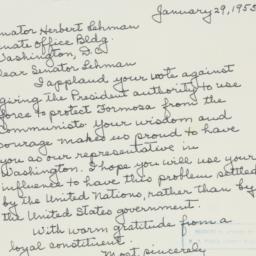 January 29, 1955
enator Herbert Lehman
enate Office Bldg.
Washington, D.C.
Dear Senator Lehman
I applaud your vote against
giving the President authority to use
force to protect Formosa from the
Communists. Your wisdom and
courage makes us proud to have
you as our representative in
Washington. I hope you will use your
influence to have this problem settled
by the United Nations, rather than by
the United States government.
With warm gratitude from a
loyal constituent.
Most sincerely